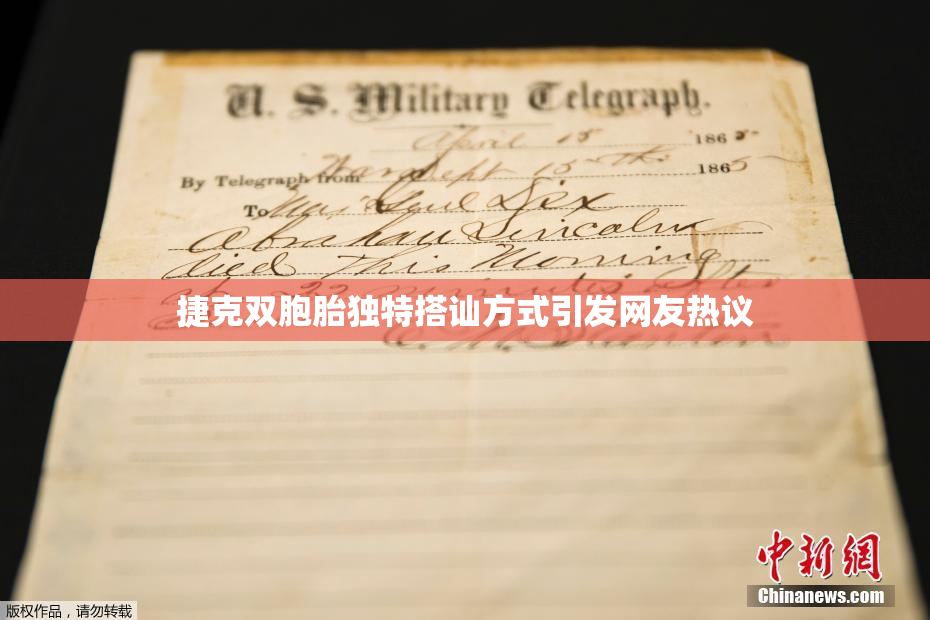 U. S. Military Telegraph.
April 15 1865
By Telegraph from War Dept 15th 1865
To Maj Genl Dix
Abraham Lincoln
died This Morning
at 22 minutes after
捷克双胞胎独特搭讪方式引发网友热议
中新网
Chinanews.com
版权作品，请勿转载